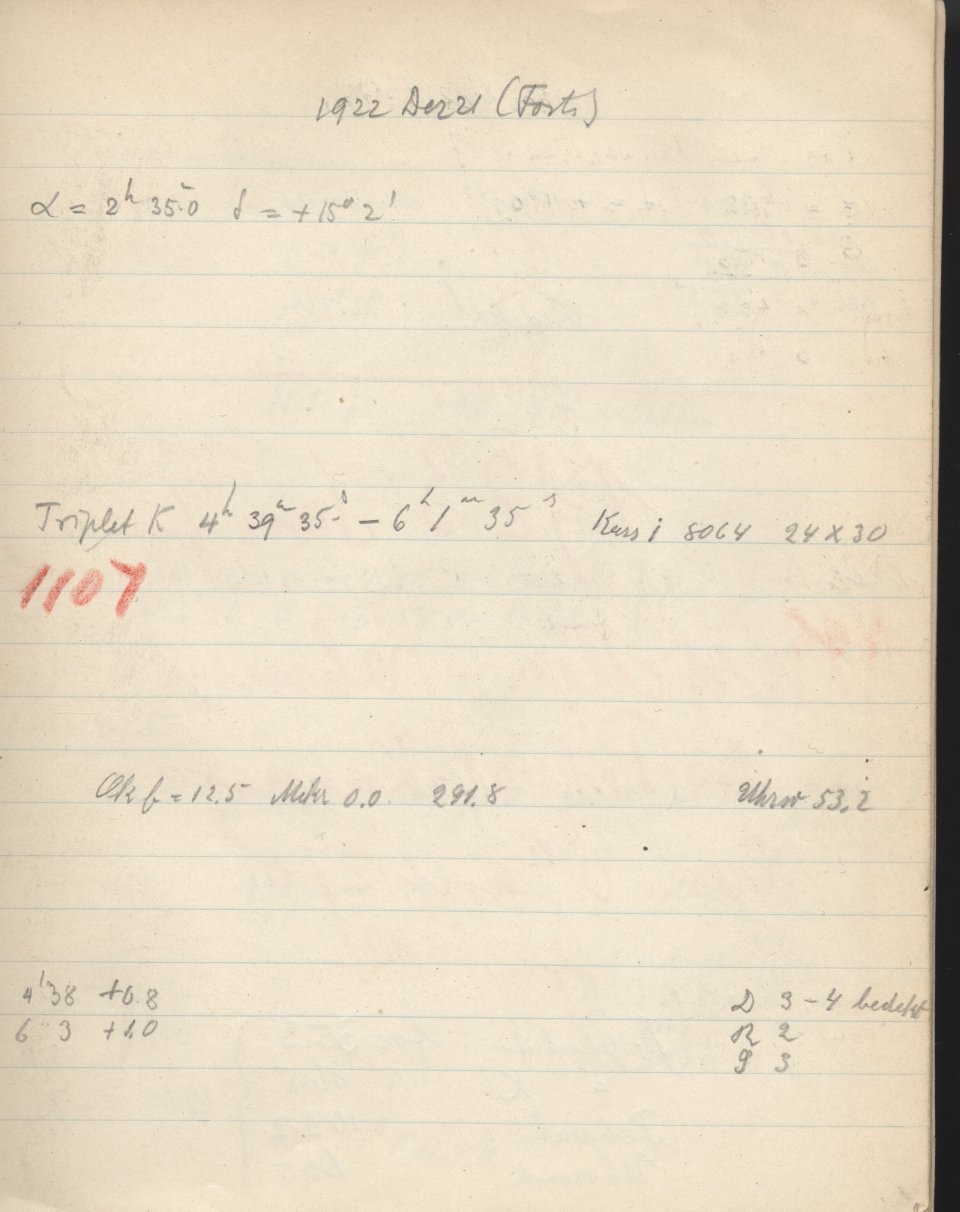 1922 Dez 21 (Forts)
α = 2ʰ 35ᵐ.0 δ = +15° 2'
Triplet K 4ʰ 39ᵐ 35ˢ – 6ʰ 1ᵐ 35ˢ Kass i 8064 24 x 30
1107
Ok f = 12.5 Mikr 0.0 291.8 Uhrw 53.2
4ʰ38 +0.8 D 3–4 bedeckt
6 3 +1.0 R 2
G 3